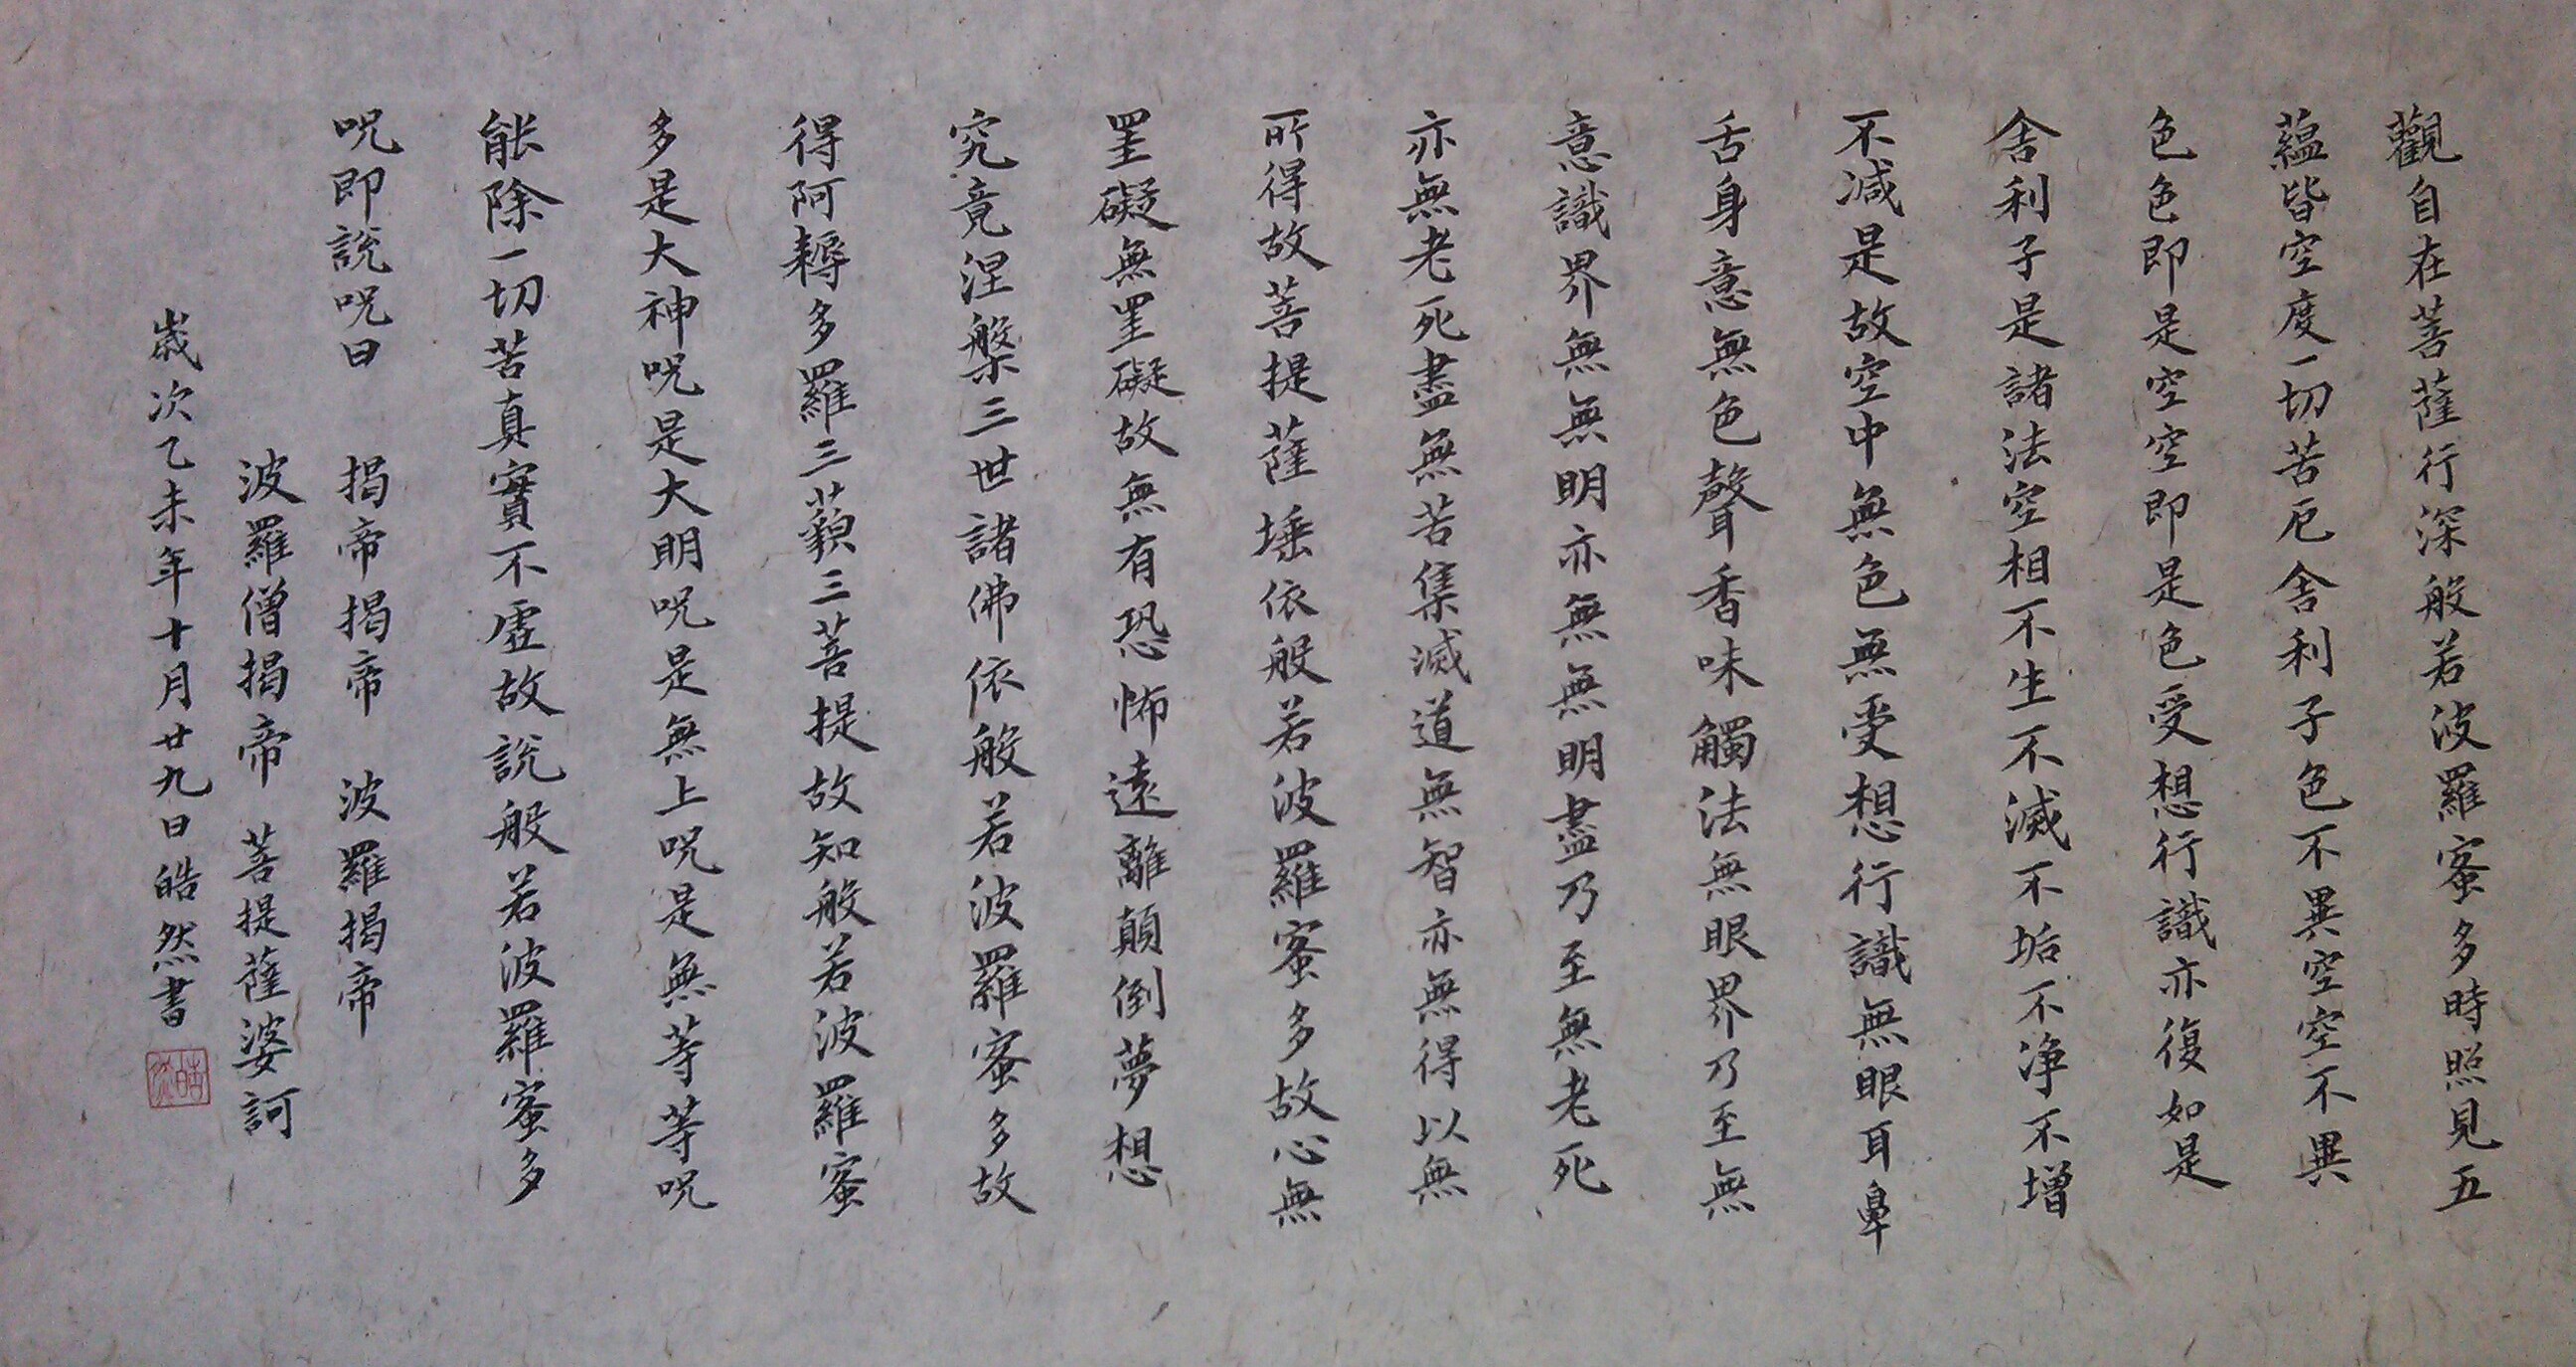 觀自在菩薩行深般若波羅蜜多時照見五
蘊皆空度一切苦厄舍利子色不異空空不異
色色即是空空即是色受想行識亦復如是
舍利子是諸法空相不生不滅不垢不净不增
不減是故空中無色無受想行識無眼耳鼻
舌身意無色聲香味觸法無眼界乃至無
意識界無無明亦無無明盡乃至無老死
亦無老死盡無苦集滅道無智亦無得以無
所得故菩提薩埵依般若波羅蜜多故心無
罣礙無罣礙故無有恐怖遠離顛倒夢想
究竟涅槃三世諸佛依般若波羅蜜多故
得阿耨多羅三藐三菩提故知般若波羅蜜
多是大神呪是大明呪是無上呪是無等等呪
能除一切苦真實不虛故說般若波羅蜜多
呪即說呪曰 揭帝揭帝 波羅揭帝
波羅僧揭帝 菩提薩婆訶
歲次乙未年十月廿九日皓然書
皓然